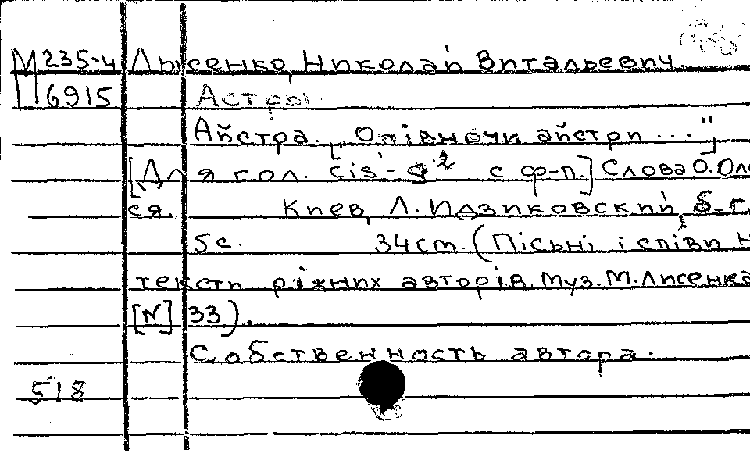 М 235-4 Лысенко, Николай Витальевич
6915 Астры.
Айстра. [„Опівночи айстри ..."]
[Для гол. cis'-g² с ф-п.] Слова О. Оле
ся. Киев, Л. Идзиковский, б-г.
5с. 34cm. (Пісьні і співи н
тексти ріжних авторів. Муз. М. Лисенка
[N] 33).
Собственность автора.
518